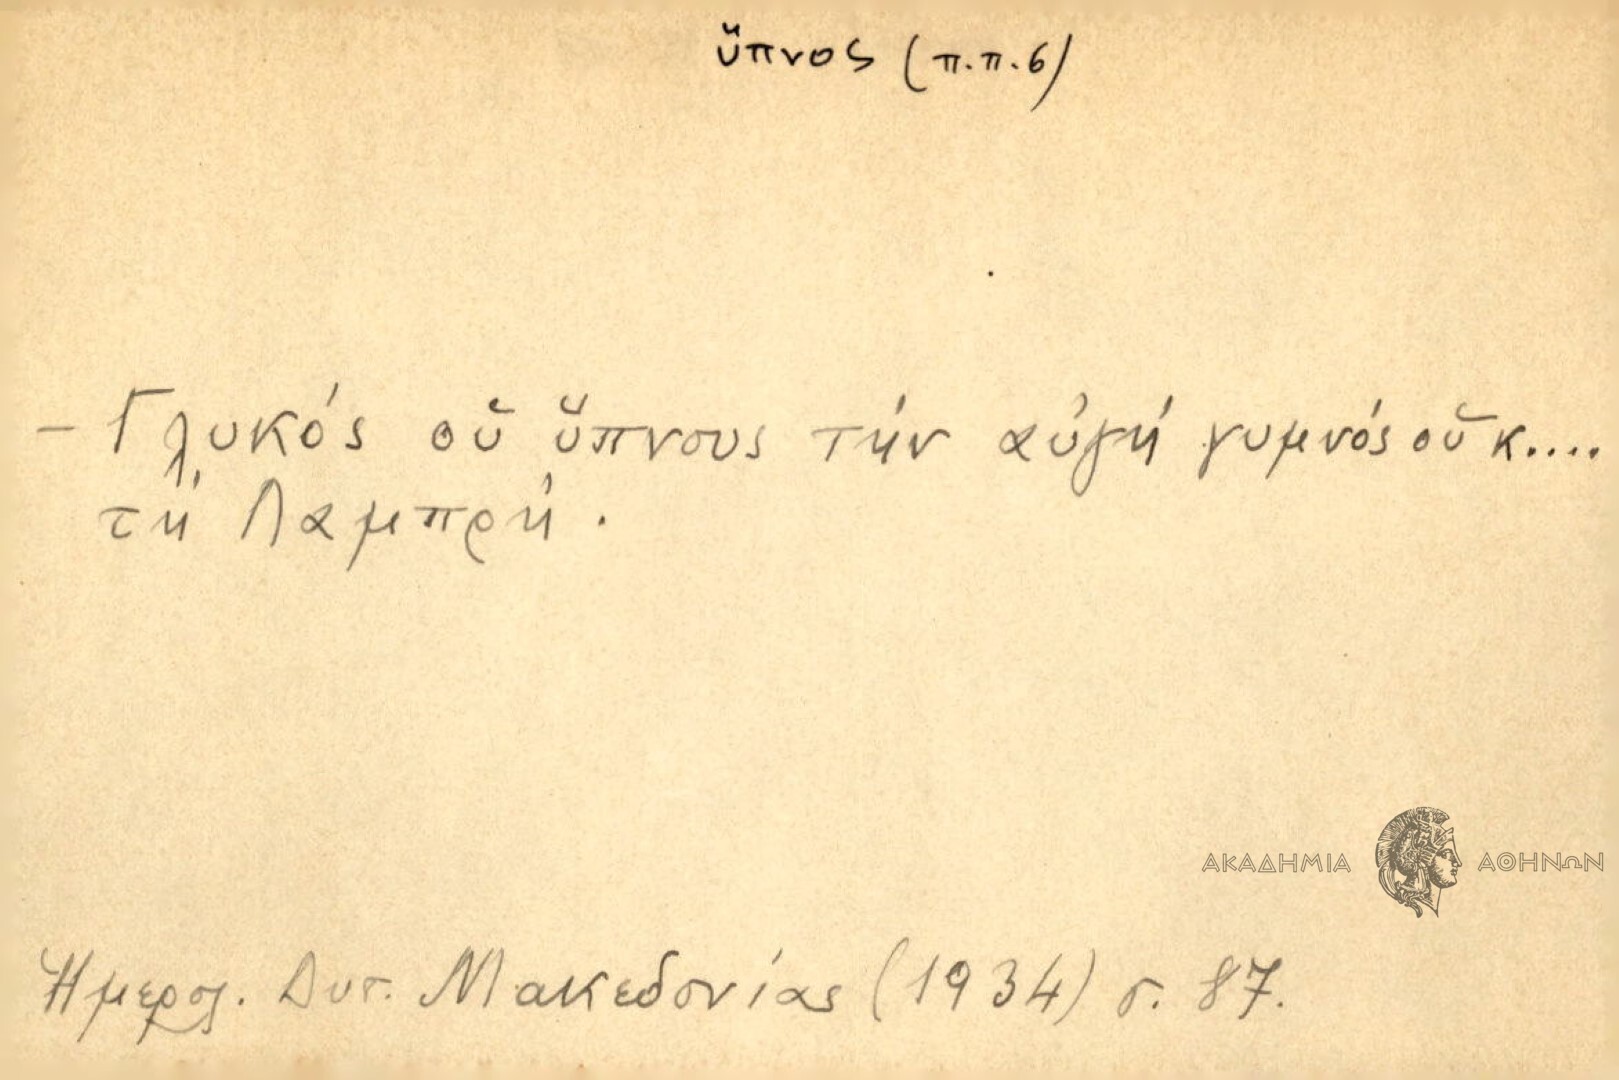 ὕπνος (π.π.6)
- Γλυκός οὔ ὕπνους τήν αὐγή γυμνός οὔ κ....
τή Λαμπρή.
ΑΚΑΔΗΜΙΑ ΑΘΗΝΩΝ
Ἡμερολ. Δυτ. Μακεδονίας (1934) σ. 87.